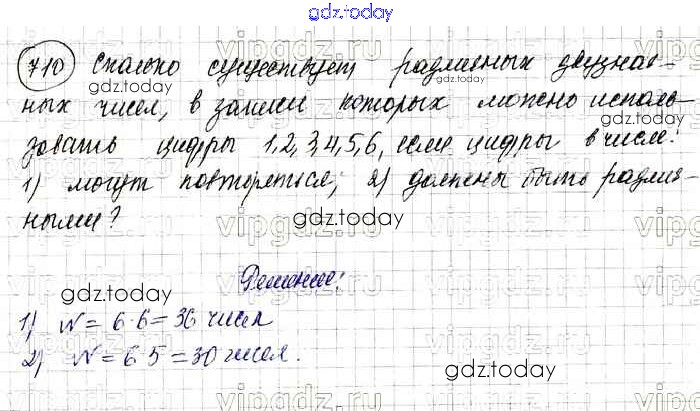 gdz.today
710 Сколько существует различных двузнач-
ных чисел, в записи которых можно исполь-
зовать цифры 1,2,3,4,5,6, если цифры в числе:
1) могут повторяться; 2) должны быть различ-
ными?
Решение:
1) N = 6·6 = 36 чисел
2) N = 6·5 = 30 чисел.
gdz.today
gdz.today
gdz.today
gdz.today
gdz.today
vipgdz.ru
vipgdz.ru
vipgdz.ru
vipgdz.ru